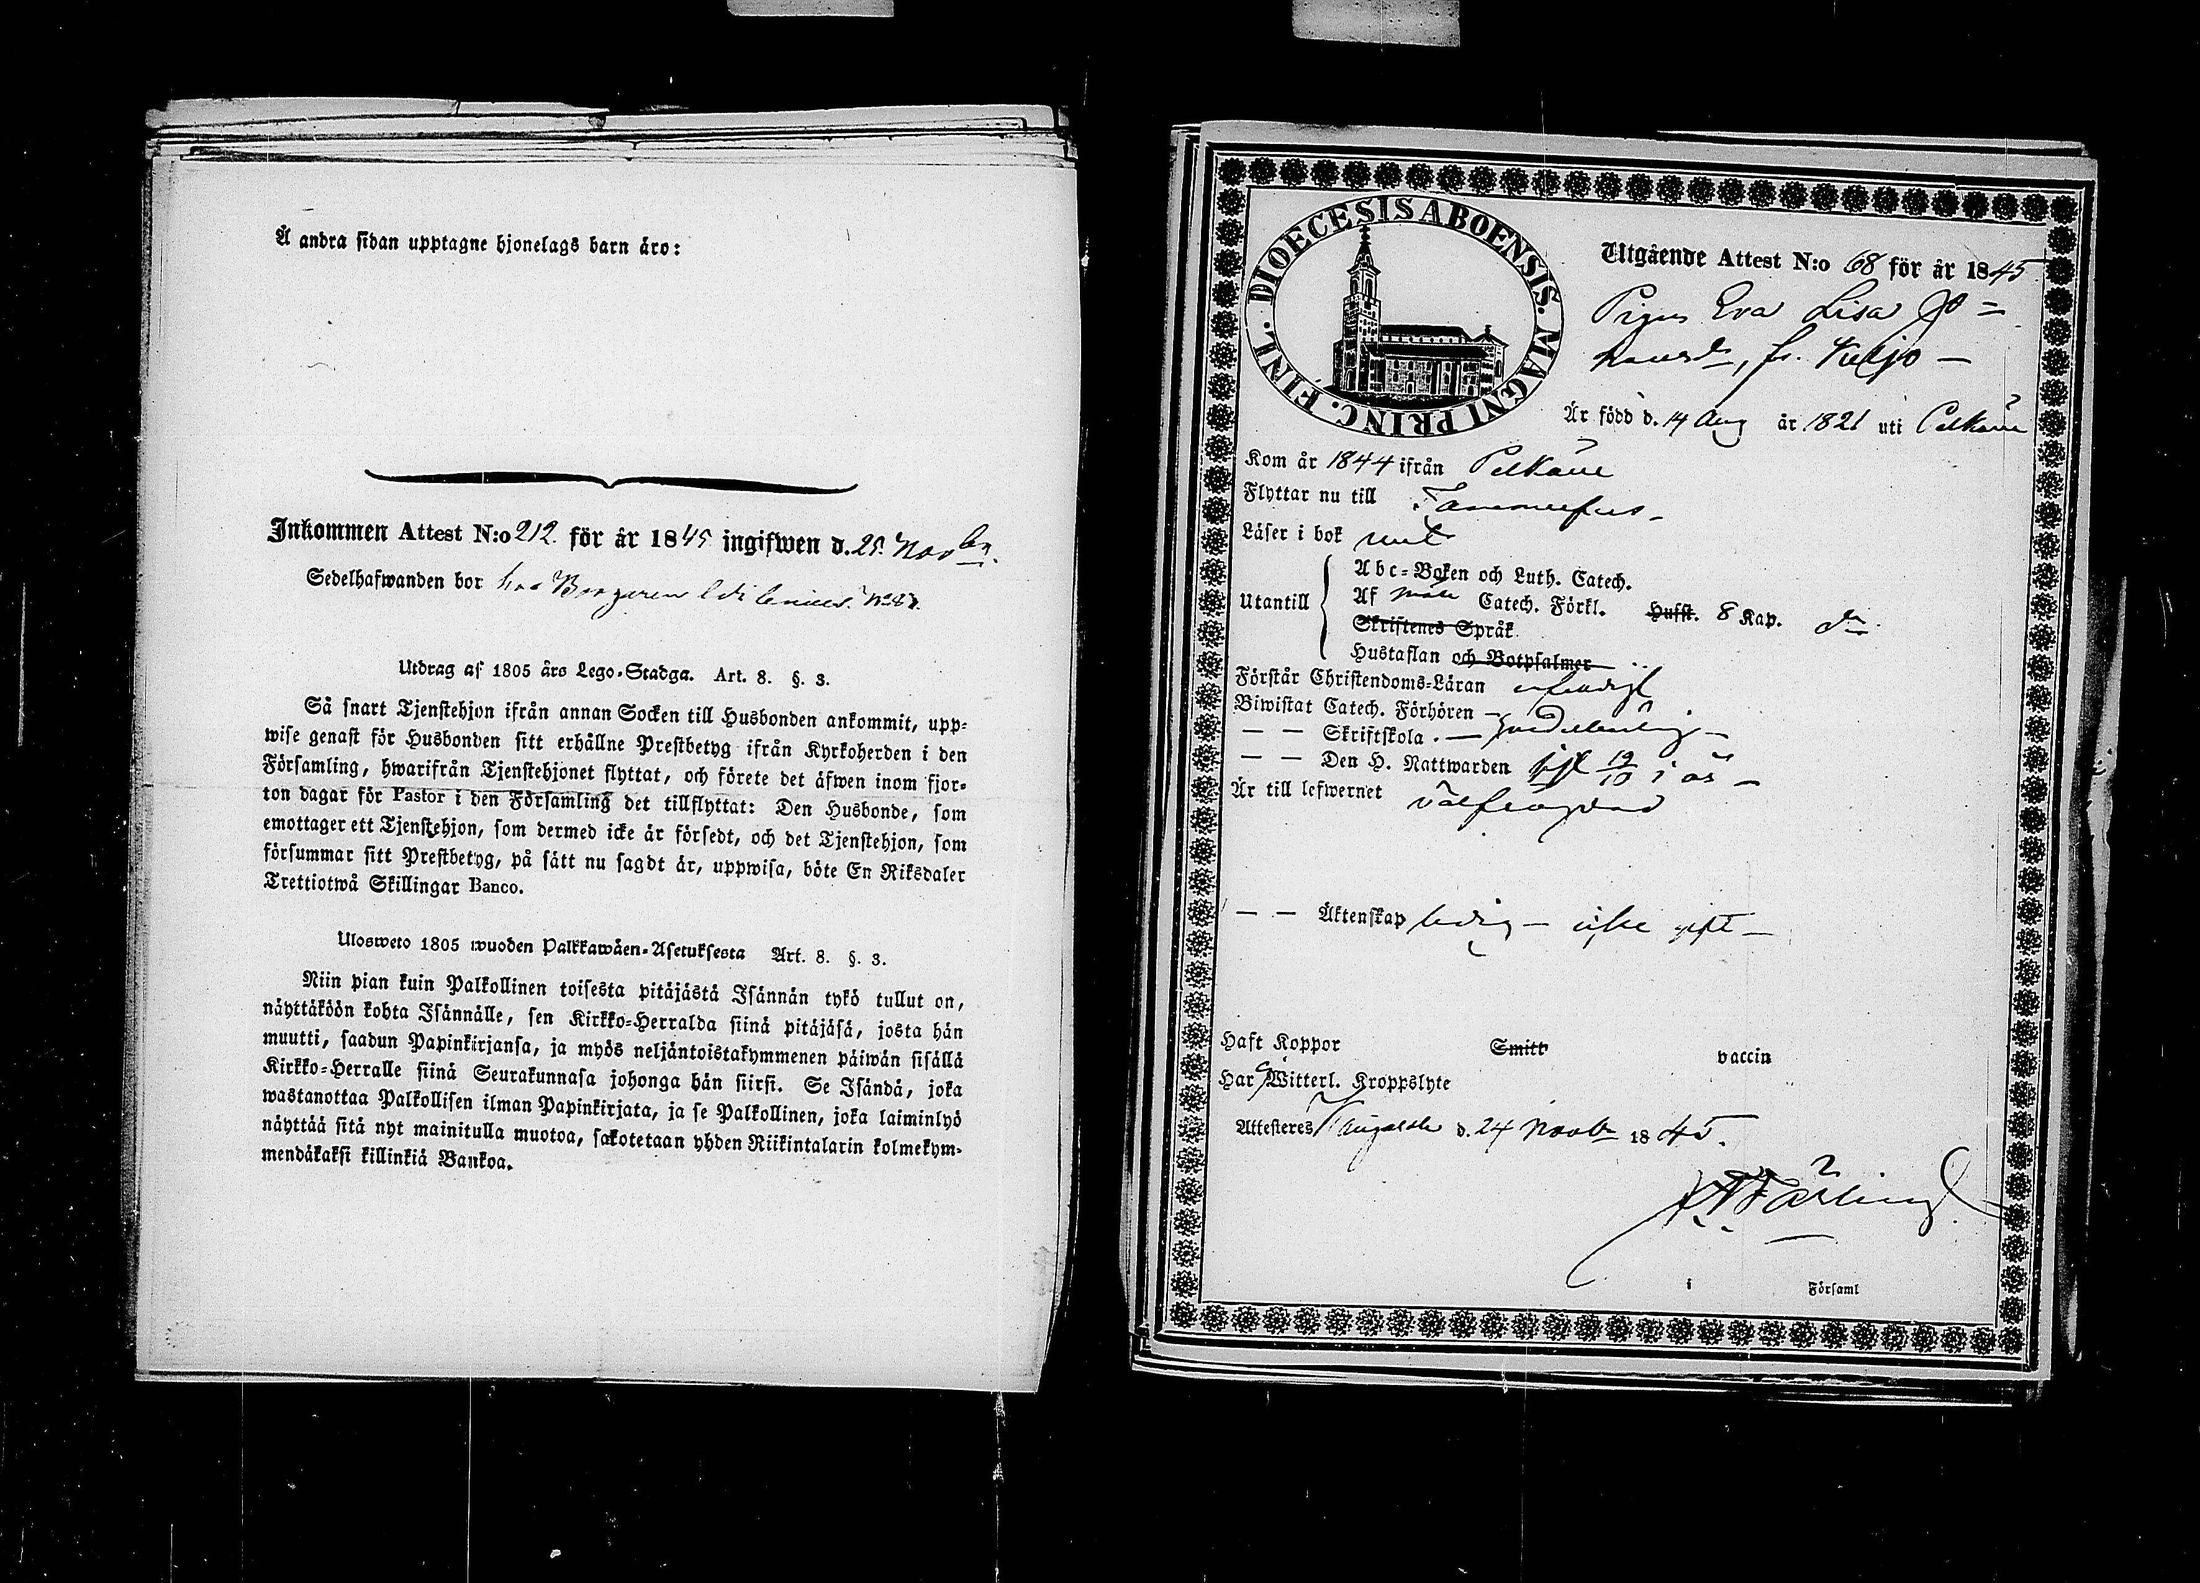 Å andra sidan upptagne hjonelags barn äro:
Inkommen Attest N:o 212 för år 1845 ingifwen d. 25 Novbr.
Sedelhafwanden bor hos Borgaren
Utdrag af 1805 års Lego-Stadga. Art. 8. §. 3.
Så snart Tjenstehjon ifrån annan Socken till Husbonden ankommit, upp-
wise genast för Husbonden sitt erhållne Prestbetyg ifrån Kyrkoherden i den
Församling, hwarifrån Tjenstehjonet flyttat, och förete det äfwen inom fjor-
ton dagar för Pastor i den Församling det tillflyttat: Den Husbonde, som
emottager ett Tjenstehjon, som dermed icke är försedt, och det Tjenstehjon, som
försummar sitt Prestbetyg, på sätt nu sagdt är, uppwisa, böte En Riksdaler
Trettiotwå Skillingar Banco.
Ulosweto 1805 wuoden Palkkawäen-Asetuksesta Art. 8. §. 3.
Niin pian kuin Palkollinen toisesta pitäjästä Isännän tykö tullut on,
näyttäköön kohta Isännälle, sen Kirkko-Herralda siinä pitäjäsä, josta hän
muutti, saadun Papinkirjansa, ja myös neljäntoistakymmenen päiwän sisällä
Kirkko-Herralle siinä Seurakunnasa johonga hän siirsi. Se Isändä, joka
wastanottaa Palkollisen ilman Papinkirjata, ja se Palkollinen, joka laiminlyö
näyttää sitä nyt mainitulla muotoa, sakotetaan yhden Riikintalarin kolmekym-
mendäkaksi killinkiä Bankoa.
DIOECESIS ABOENSIS. MAGNI PRINC. FINL.
Utgående Attest N:o 68 för år 1845
Pigan Eva Lisa Jo=
hansdr, fr. Keljo —
Är född d. 14 Aug år 1821 uti Pelkäne
Kom år 1844 ifrån Pelkäne
Flyttar nu till Tammerfors
Läser i bok
Utantill
Abc-Boken och Luth. Catech.
Af Catech. Förkl. Hufst. 8 Kap. do
Skriftenes Språk
Hustaflan och Botpsalmer
Förstår Christendoms-Läran
Biwistat Catech. Förhören —
— — Skriftskola. —
— — Den H. Nattwarden sist 19/10 i år —
Är till lefwernet välfrägdad
— — Äktenskap ledig — icke gift —
Haft Koppor Smitt vaccin
Har Witterl. Kroppslyte
Attesteres Kangasala d. 24 Novbr 1845.
i Församl